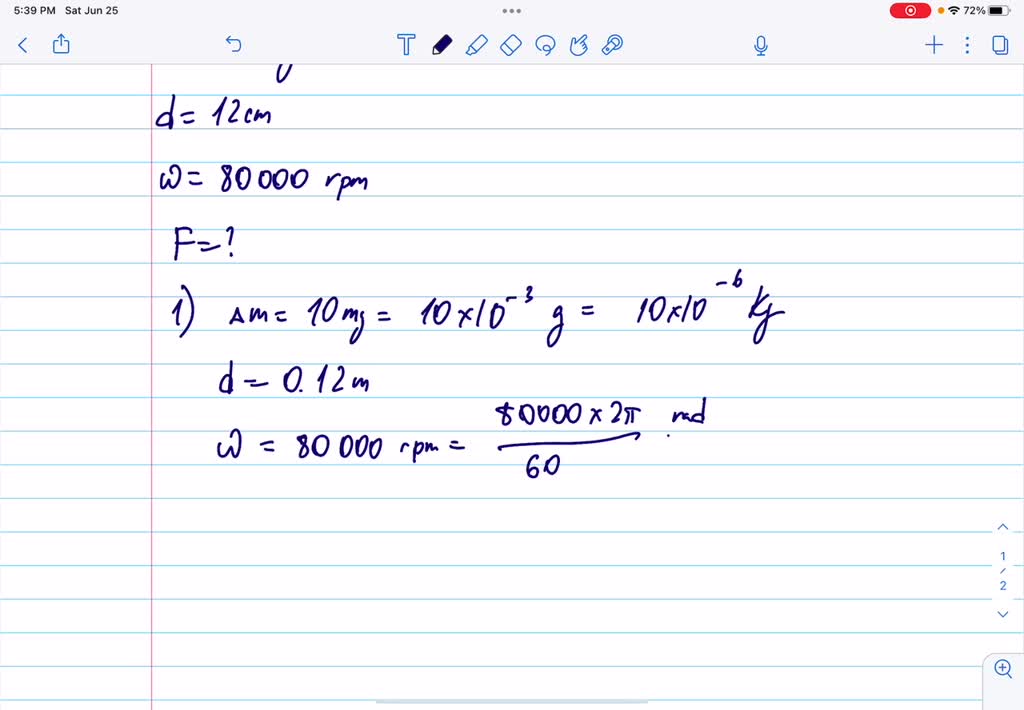 5:39 PM Sat Jun 25
72%
T
d = 12cm
ω = 80 000 rpm
F = ?
1) Δm = 10 mg = 10 × 10⁻³ g = 10 × 10⁻⁶ Kg
d = 0.12 m
ω = 80 000 rpm = 80000 × 2π / 60 rad
1
/
2